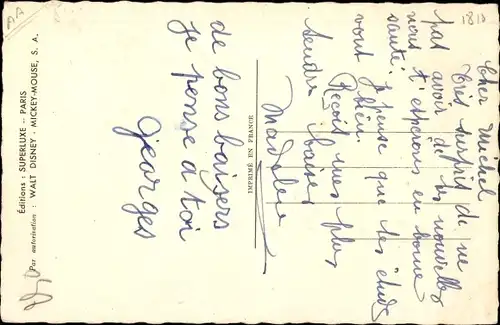 Cher Michel
très surpris de ne
pas avoir de tes nouvelles
nous t'espérons en bonne
santé. je pense que tes études
vont bien.
Reçois mes plus
tendres baisers
de bons baisers
je pense à toi
Georges
IMPRIMÉ EN FRANCE
Éditions : SUPERLUXE - PARIS
Par autorisation : WALT DISNEY - MICKEY-MOUSE, S. A.
AA